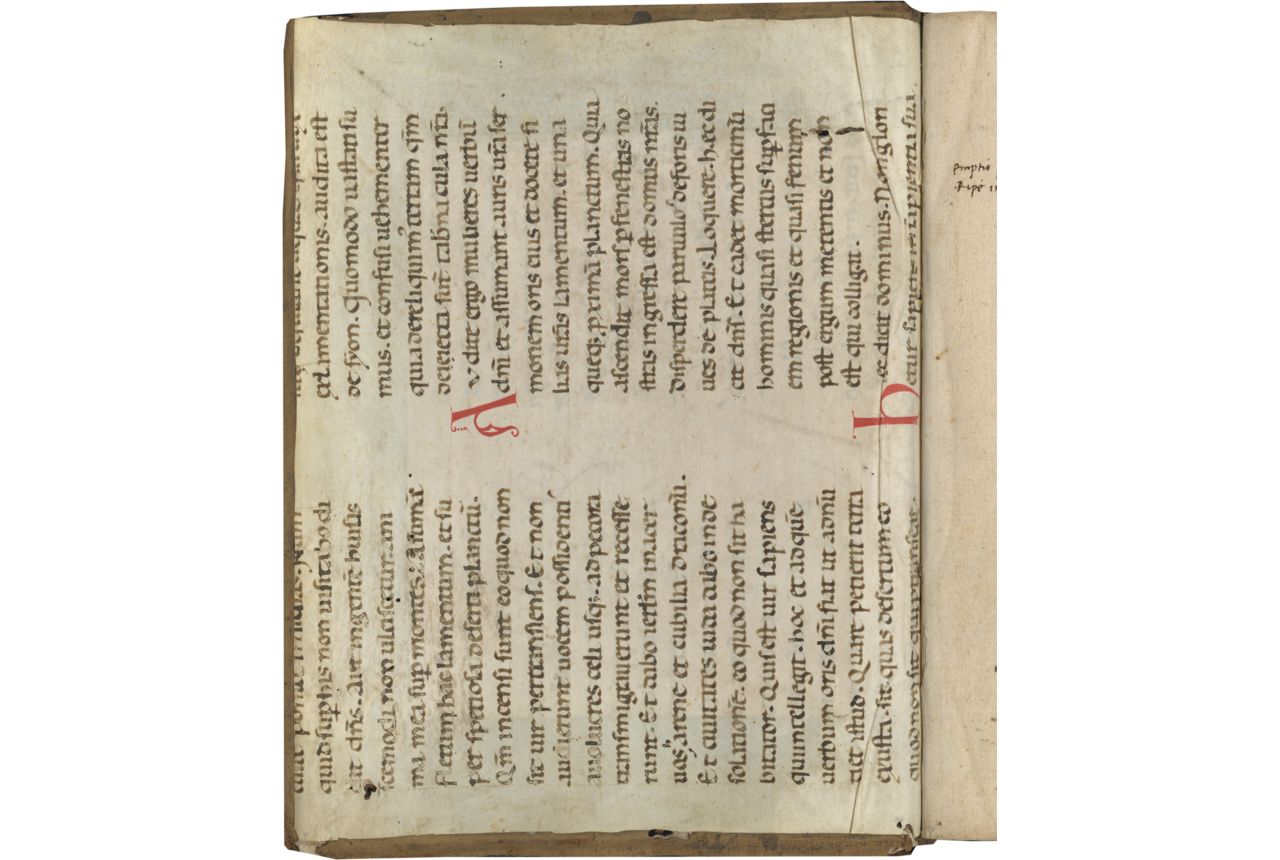 quid sup his non uisitabo di
cit dn̄s. Aut in gente huius
cemodi non ulciscetur am
ma mea sup montes: Assumā
fletum hac lamentum. et su
per speciosa deserti planctū.
Qm̄ incensi sunt eo quod non
sit uir pertransiens. Et non
audierunt uocem possidenti
auolucres celi usq; ad pecora
transmigrauerunt et recesse
runt. Et dabo ierlm̄ in acer
uos harene et cubilia draconū.
Et ciuitates iuda dabo in de
solationē. eo quod non sit ha
bitator. Quis est uir sapiens
qui intellegit. hoc et ad quē
uerbum oris dn̄i fiat ut adnū
tiet istud. Quare perierit terra
exusta sit. quas desertum eo
quod non sit qui pertranseat.
est lamentationis. audita est
de syon. Quomodo uastati su
mus. et confusi uehementer
quia dereliquimꝰ terram qm̄
deiecta sūt tabernacula nr̄a.
Audite ergo mulieres uerbū
dn̄i et assumant aures ur̄a ser
monem oris eius et docete fi
lias ur̄as lamentum. et una
queq; proximā planctum. Quia
ascendit mors p fenestras no
stras ingressa est domus nr̄as.
disperdere paruulos deforis iu
uenes de plateis. Loquere. hec di
cit dn̄s. Et cadet morticinū
hominis quasi stercus sup faci
em regionis et quasi fenum
post tergum metentis et non
est qui colligat.
Hec dicit dominus. Non glori
etur sapiens in sapientia sua.
Emptio